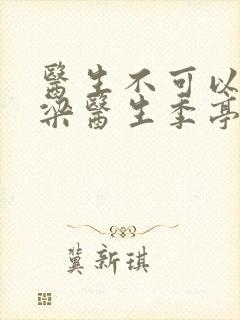 醫生不可以
梁醫生季亭
冀新琪